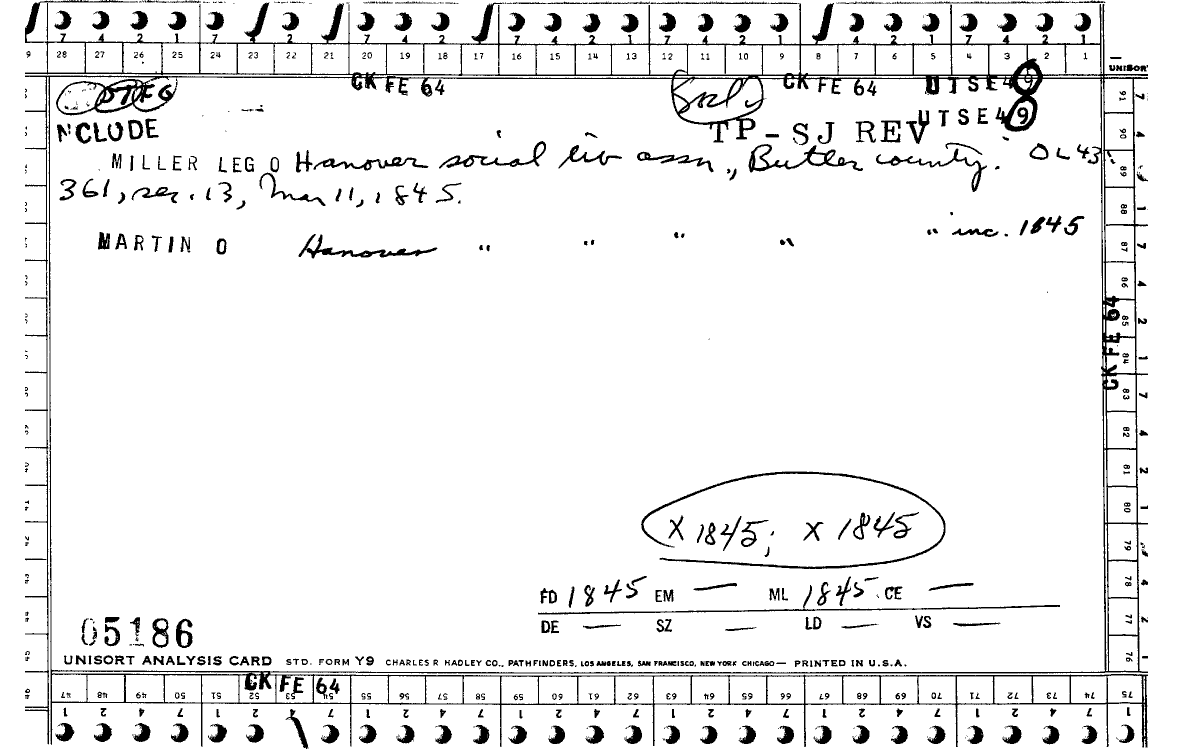 7 4 2 1 7 4 2 1 7 4 2 1 7 4 2 1 7 4 2 1 7 4 2 1 7 4 2 1
28 27 26 25 24 23 22 21 20 19 18 17 16 15 14 13 12 11 10 9 8 7 6 5 4 3 2 1
UNISORT
CK FE 64 CK FE 64 UTSE49
UTSE49
NCLUDE TP-SJ REV
MILLER LEG O Hanover social lib assn., Butler county. OL 43:
361, sec. 13, Mar 11, 1845.
MARTIN O Hanover " " " " " inc. 1845
CK FE 64
91 90 89 88 87 86 85 84 83 82 81 80 79 78 77 76
X 1845; X 1845
FD 1845 EM — ML 1845 CE —
DE — SZ — LD — VS —
05186
UNISORT ANALYSIS CARD STD. FORM Y9 CHARLES R HADLEY CO., PATHFINDERS, LOS ANGELES, SAN FRANCISCO, NEW YORK CHICAGO — PRINTED IN U.S.A.
CK FE 64
47 48 49 50 51 52 53 54 55 56 57 58 59 60 61 62 63 64 65 66 67 68 69 70 71 72 73 74 75
1 2 4 7 1 2 4 7 1 2 4 7 1 2 4 7 1 2 4 7 1 2 4 7 1 2 4 7 1